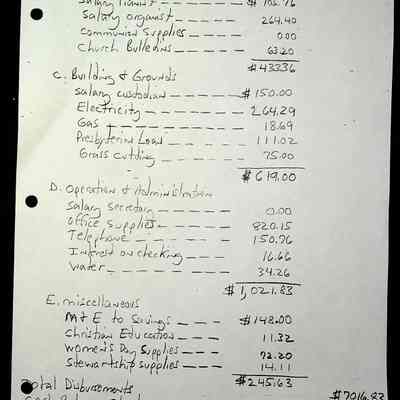 Salary Pianist ---- $ 105.76
Salary organist ---- 264.40
Communion Supplies -- 0.00
Church Bulletins ---- 63.20
$433.36
C. Building & Grounds
Salary custodian ---- $150.00
Electricity ------ 264.29
Gas --------- 18.69
Presbyterian Loan ---- 111.02
Grass cutting ----- 75.00
$619.00
D. Operation & Administration
Salary Secretary ----- 0.00
Office Supplies ----- 820.15
Telephone ------- 150.76
Interest on checking --- 16.66
Water --------- 34.26
$1,021.83
E. Miscellaneous
M&E to Savings --- $148.00
Christian Education --- 11.32
Women's Day Supplies -- 72.20
Stewartship supplies --- 14.11
$245.63
Total Disbursements
$7016.82